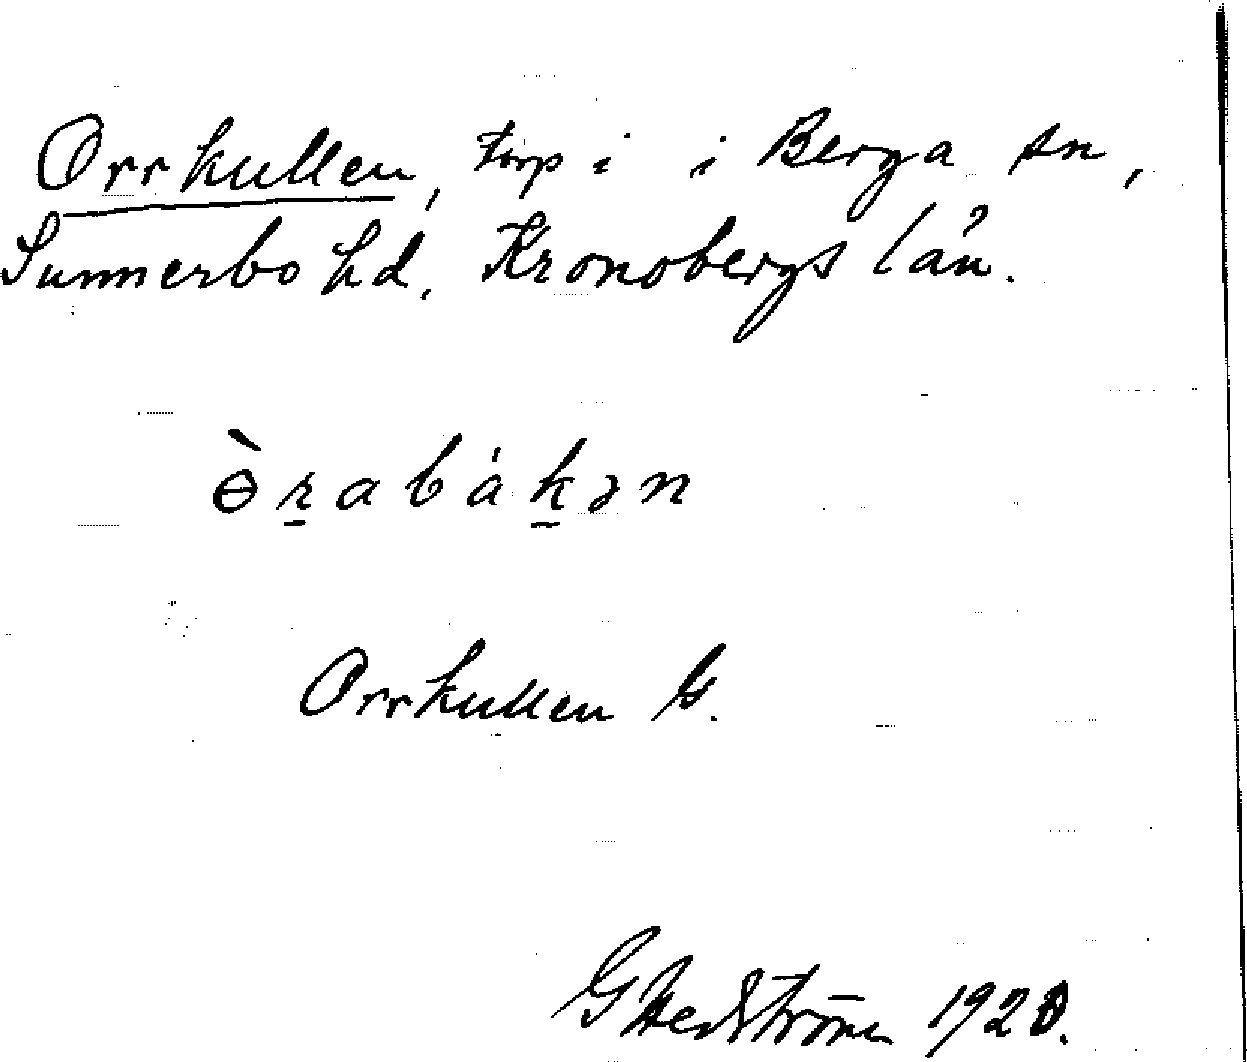 Orrkullen, torp i i Berga sn,
Sunnerbo hd, Kronobergs län.
ɵ̀rabákən
Orrkullen G.
G Hedström 1920.